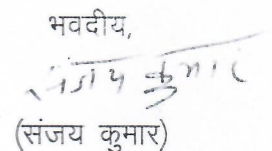 भवदीय,
संजय कुमार
(संजय कुमार)